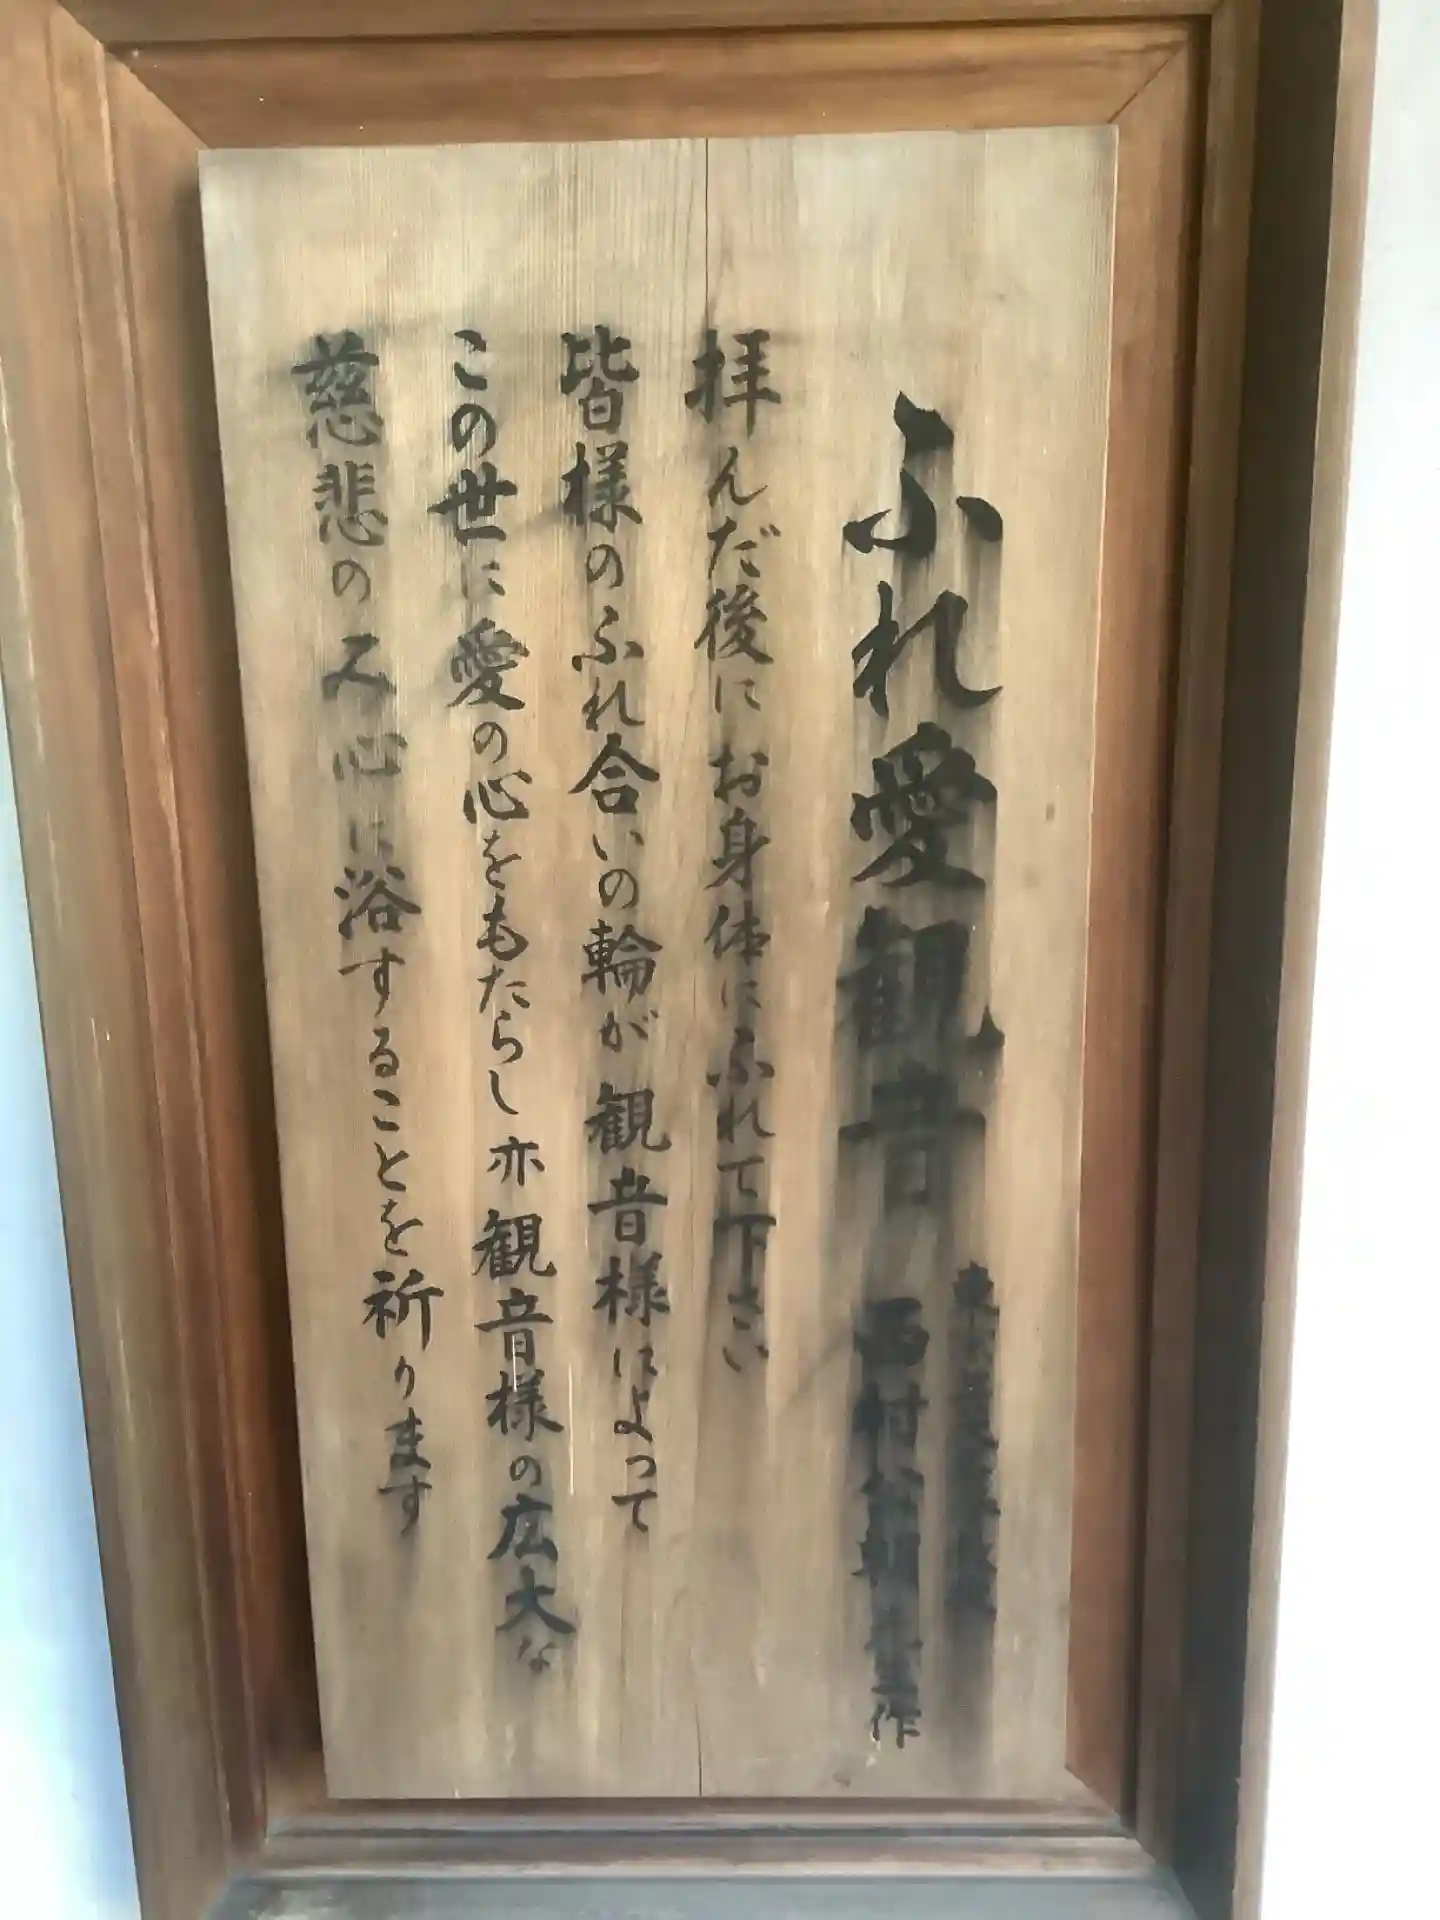 ふれ愛観音
西村公朝 作
拝んだ後にお身体にふれて下さい
皆様のふれ合いの輪が観音様によって
この世に愛の心をもたらし亦観音様の広大な
慈悲の又心に浴することを祈ります